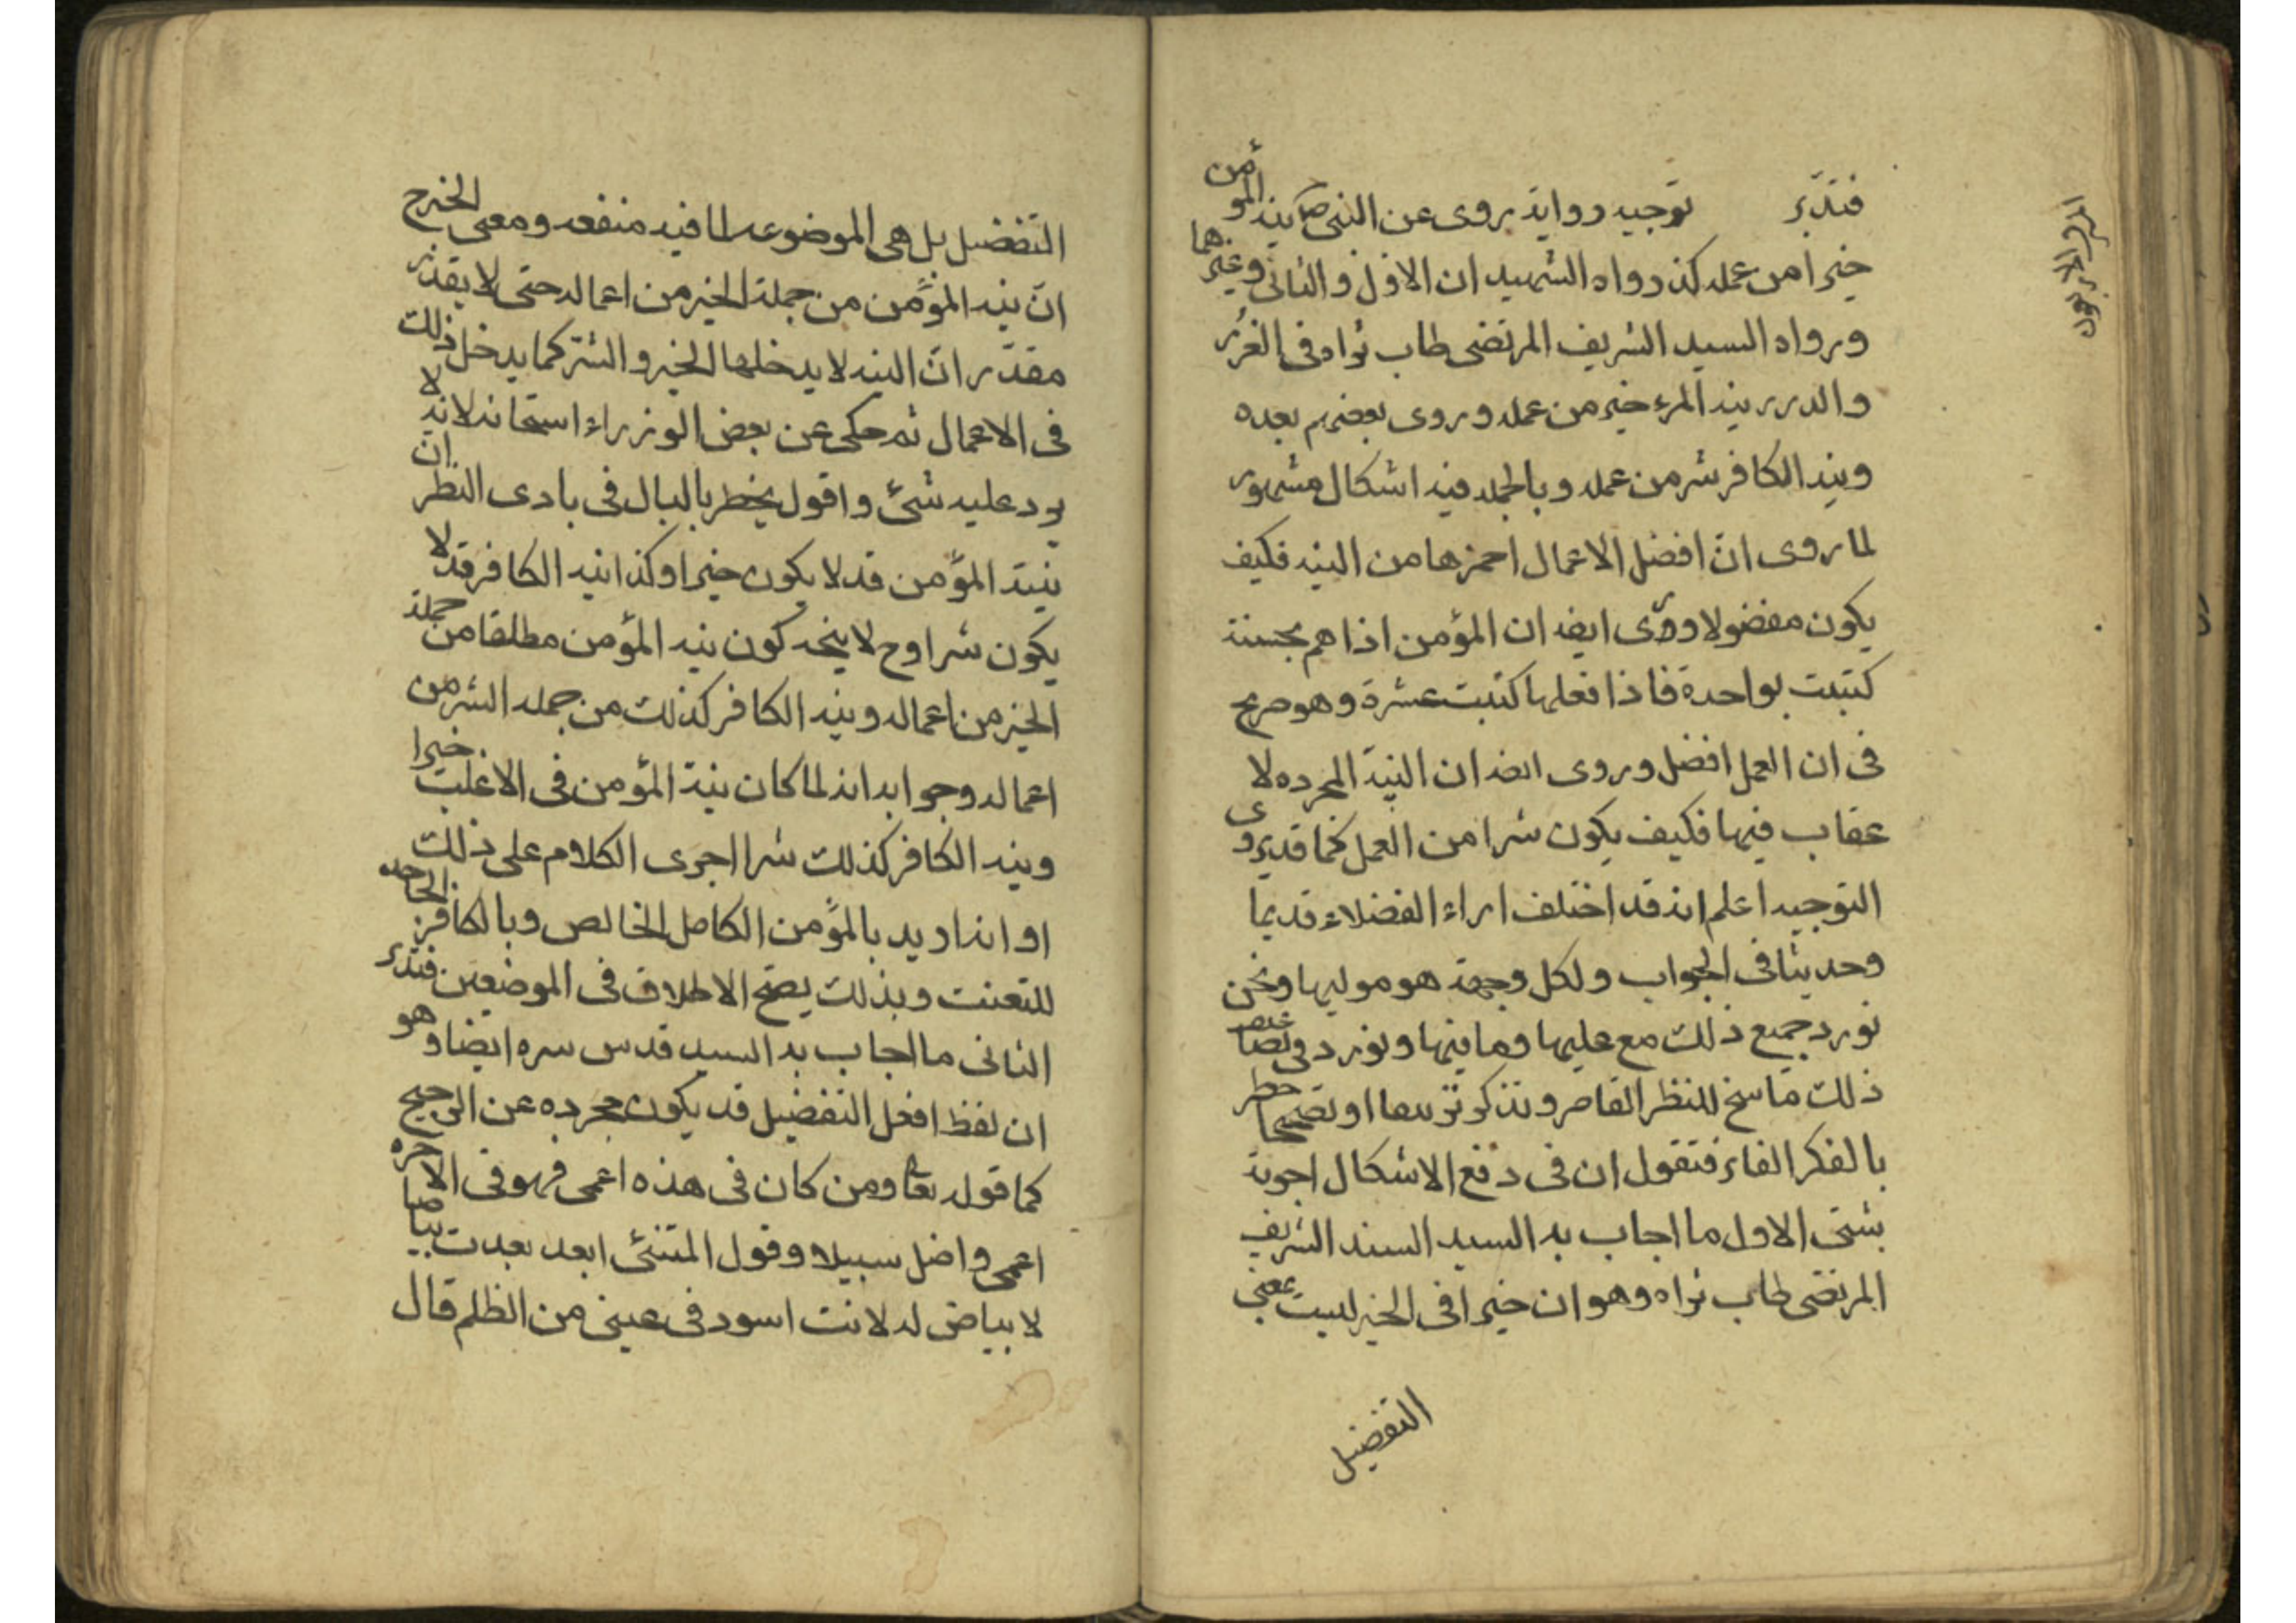 فتدبر توجيه رواية روى عن النبى ص نية المؤمن
خيرا من عمله كذ رواه الشهيد ان الاول والثانى وغيرهما
ورواه السيد الشريف المرتضى طاب ثراه فى الغرر
والدرر نية المرء خير من عمله وروى بعضهم بعده
ونية الكافر شر من عمله وبالجمله فيه اشكال مشهور
لما روى ان افضل الاعمال احمزها من النية فكيف
يكون مفضولا وروى ايضا ان المؤمن اذا هم بحسنة
كتبت بواحدة فاذا فعلها كتبت عشرة وهو صريح
فى ان العمل افضل وروى ايضا ان النية المجرده لا
عقاب فيها فكيف يكون شرا من العمل كما قد روى
التوجيه اعلم انه قد اختلف اراء الفضلاء قديما
وحديثا فى الجواب ولكل وجهة هو موليها ونحن
نورد جميع ذلك مع عليها وما فيها ونورد فى
ذلك ما سخ للنظر القاصر ونذكر او خطر
بالفكر الفاتر فنقول ان فى دفع الاشكال اجوبة
شتى الاول ما اجاب به السيد السند الشريف
المرتضى طاب ثراه وهو ان خيرا فى الخبر ليست بمعنى
التفضيل
التفضيل بل هى الموضوعه لما فيه منفعه ومعنى الخبر ح
ان نية المؤمن من جملة الخير من اعماله حتى لا يقدر
مقدر ان النية لا يدخلها الخير والشر كما يدخل ذلك
فى الاعمال ثم حكى عن بعض الوزراء استحسانه لانه لا
يرد عليه شئ واقول يخطر بالبال فى بادى النظر ان
نية المؤمن قد لا يكون خيرا وكذا نية الكافر قد لا
يكون شرا وح لا يتجه كون نية المؤمن مطلقا من جملة
الخير من اعماله ونية الكافر كذلك من جمله الشر من
اعماله وجوابه انه لما كان نية المؤمن فى الاغلب خيرا
ونية الكافر كذلك شرا اجرى الكلام على ذلك
او انه اريد بالمؤمن الكامل الخالص وبالكافر الجاحد
للتعنت وبذلك يصح الاطلاق فى الموضعين فتدبر
الثانى ما اجاب به السيد قدس سره ايضا وهو
ان لفظ افعل التفضيل قد يكون مجرده عن الترجيح
كما قوله تعا ومن كان فى هذه اعمى فهو فى الاخرة
اعمى واضل سبيلا وقول المتنبئ ابعد بعدت بياضا
لا بياض له لانت اسود فى عينى من الظلم قال